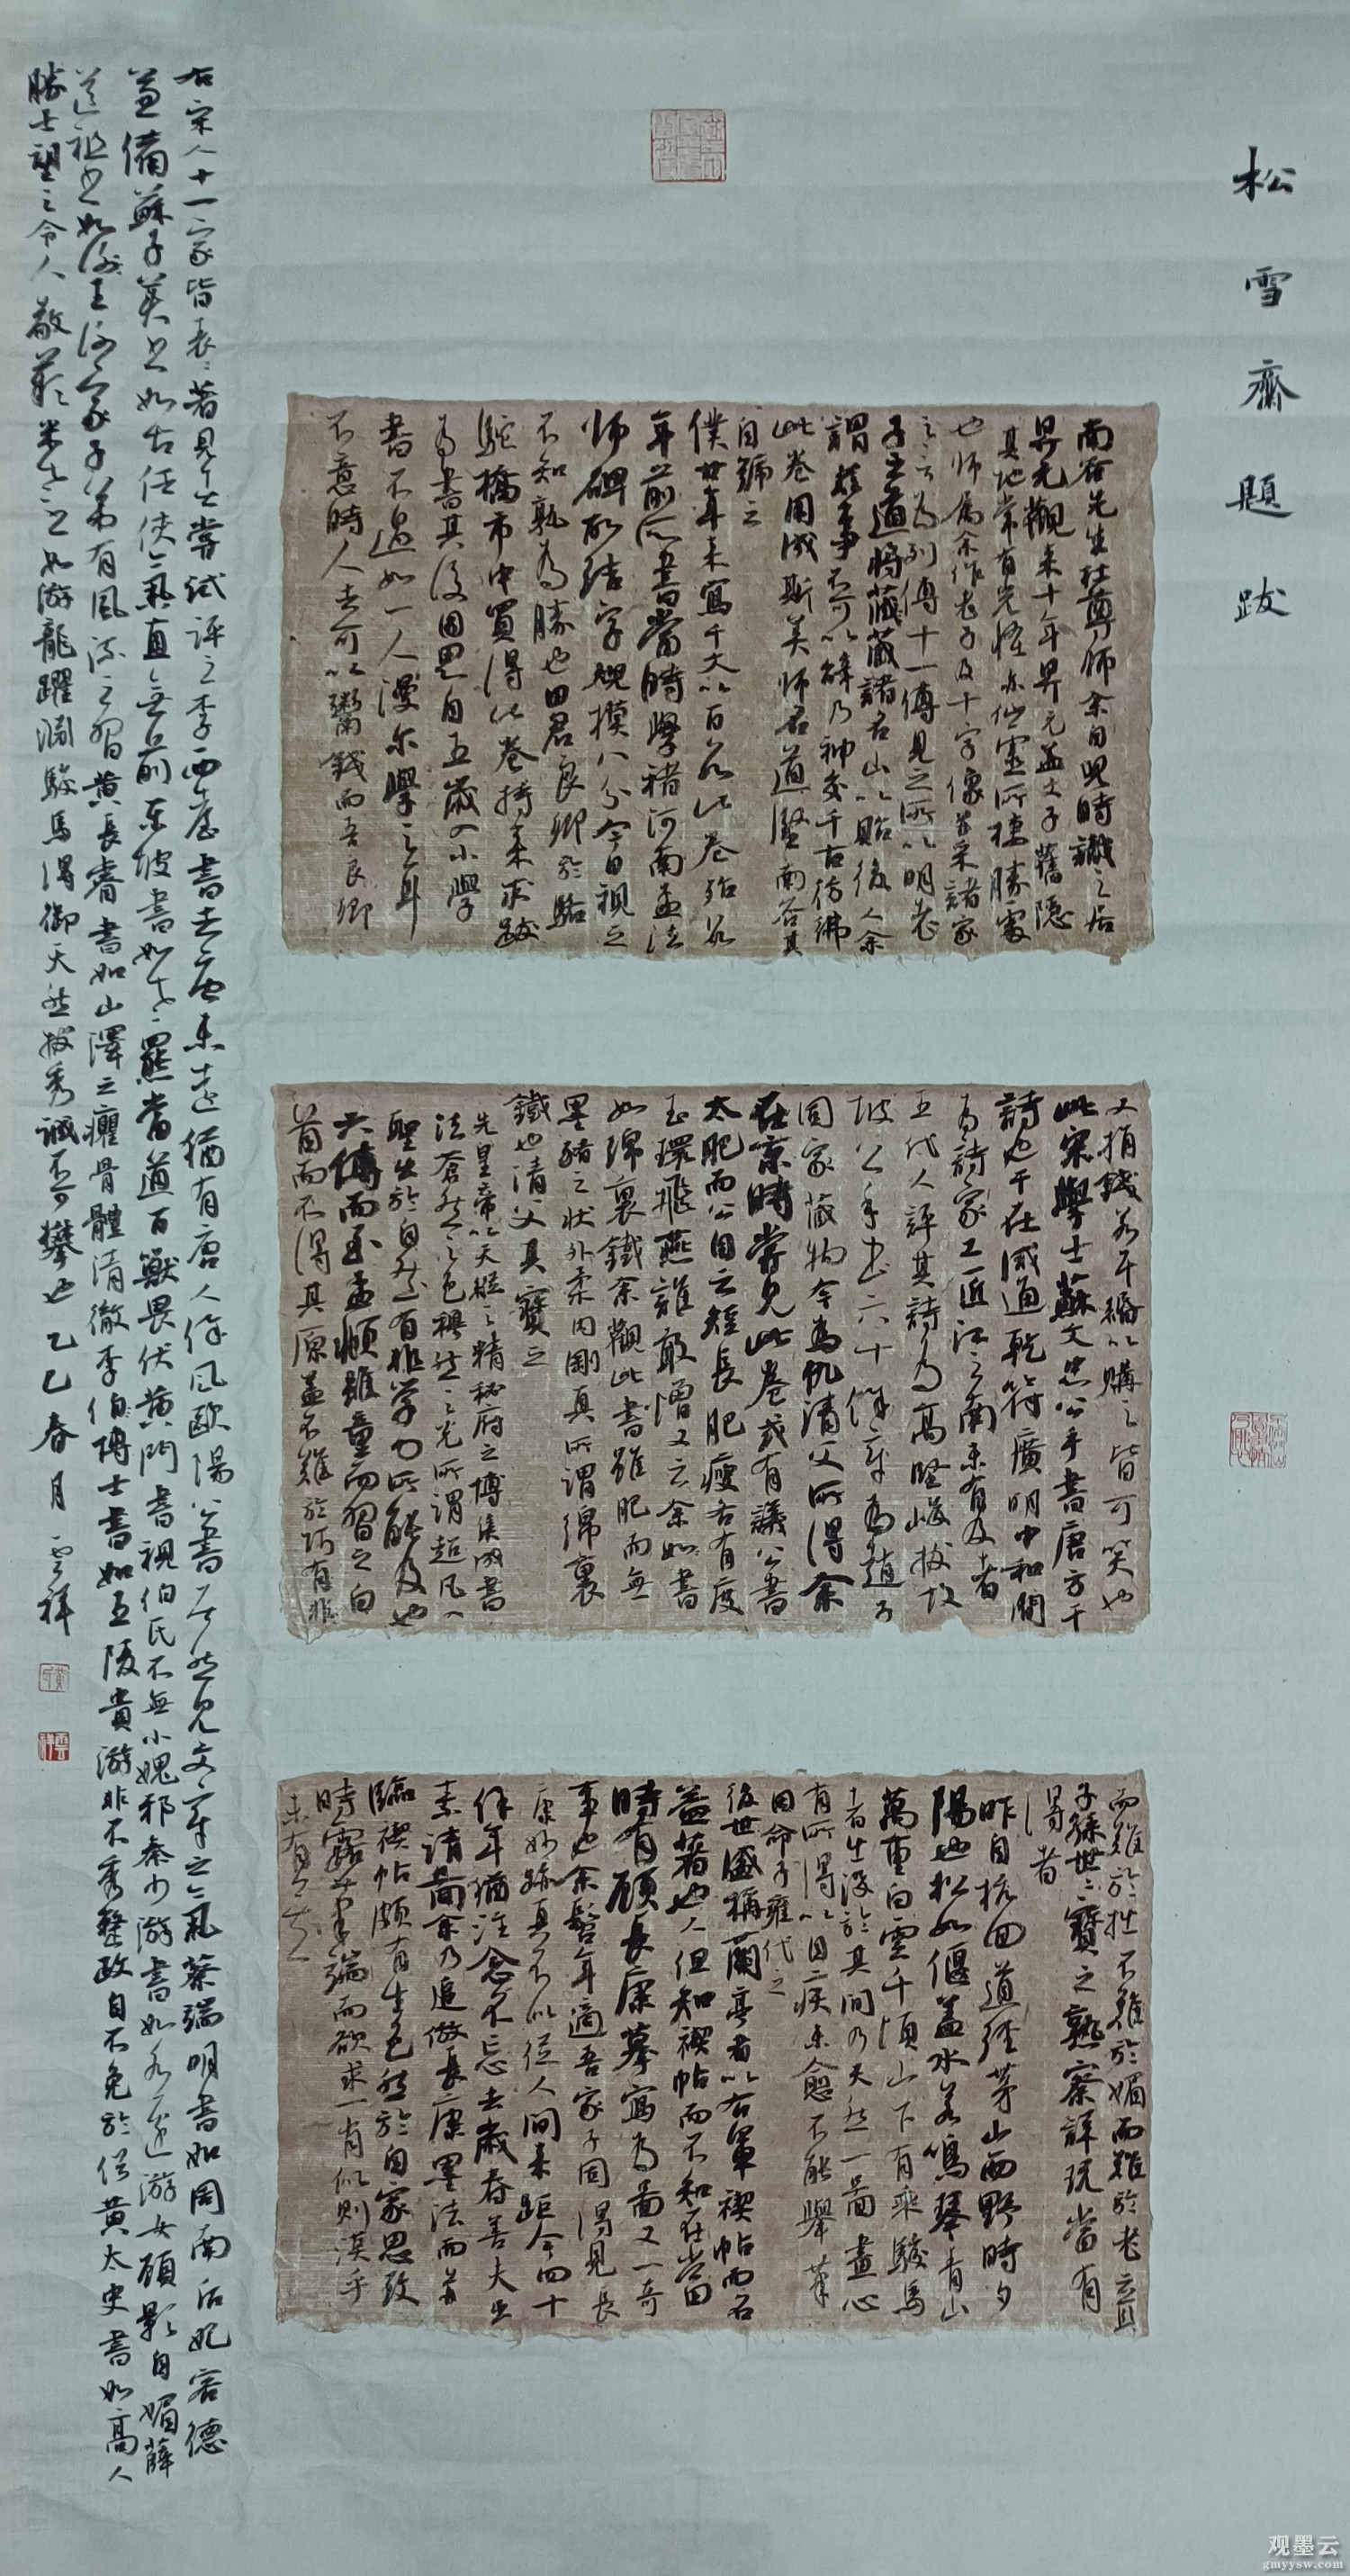 松雪齋題跋
南谷先生杜尊師余自兒時識之居
昇元觀來十年昇元盖文子舊隱
其地常有光怪亦仙靈所棲勝處
也師屬余作老子及十字像并采諸家
之言為列傳十一傳見之所以明老
子之道將藏諸名山以貽後人余
謂茲事不可以辭乃神交千古彷彿
此卷用成斯美師名道堅南谷其
自號云
僕廿年來寫千文以百數此卷殆數
年前所書當時學褚河南孟法
師碑故結字規模八分今日視之
不知孰為勝也田君良卿於駱
駝橋市中買得此卷持來求跋
為書其後因思自五歲入小學
書不過如一人漫尔學之耳
不意時人去可以鬻錢而吾良卿
又捐錢若干緡以購之皆可笑也
此宋學士蘇文忠公手書唐方干
詩也干在咸通乾符廣明中和間
為詩家工匠江之南未有及者
五代人評其詩為高堅峻拔故
坡公手書六十餘章為趙子
固家藏物今為仇清父所得余
在京時嘗見此卷或有議公書
太肥而公自云短長肥瘦各有度
玉環飛燕誰敢憎又云余如書
如綿裏鐵余觀此書雖肥而無
墨豬之狀外柔内剛真所謂綿裏
鐵也清父具寶之
先皇帝以天縱之精秘府之博集成書
法蒼然之色穆然之光所謂超凡入
聖出於自然有非學力所能及也
大傅而至孟頫雖童而習之白
首而不得其源盖不難於巧有非
而難於拙不難於媚而難於老立宜
子孫世世寶之熟察詳玩當有
得者
昨自杭回道經茅山西野時夕
陽也松如偃盖水若鳴琴青山
萬重白雲千頃山下有乘駿馬
者出沒於其間乃天然一圖畫心
有所得以目疾未愈不能舉筆
因命子雍代之
後世盛稱蘭亭者以右軍禊帖而名
益著也人但知禊帖而不知在當日
時有顧長康摹寫為圖又一奇
事也余髫年適吾家子固得見長
康妙蹟真不似從人間來距今四十
餘年猶注念不忘去歲春善夫出
素請圖余乃追倣長康墨法而并
臨禊帖頗有生色然於自家思致
時露筆端而欲求一肖似則漠乎
未有之其
右宋人十一家皆表表著見者嘗試評之李西臺書去唐未遠猶有唐人餘風歐陽公書居然見文章之氣蔡端明書如周南后妃容德
兼備蘇子美書如古任俠氣直無前東坡書如老羆當道百獸畏伏黄門書視伯氏不無小媿邪秦少游書如水邊游女顧影自媚薛
道祖書如後王謝家子弟有風流之習黄長睿書如山澤之癯骨體清徹李伯時博士書如五陵貴游非不秀整政自不免於俗黄太史書如高人
勝士望之令人敬歎米老書如游龍躍淵駿馬得御天然拔秀誠不可攀也 乙巳春月 雲祥
观墨云
gmyysw.com